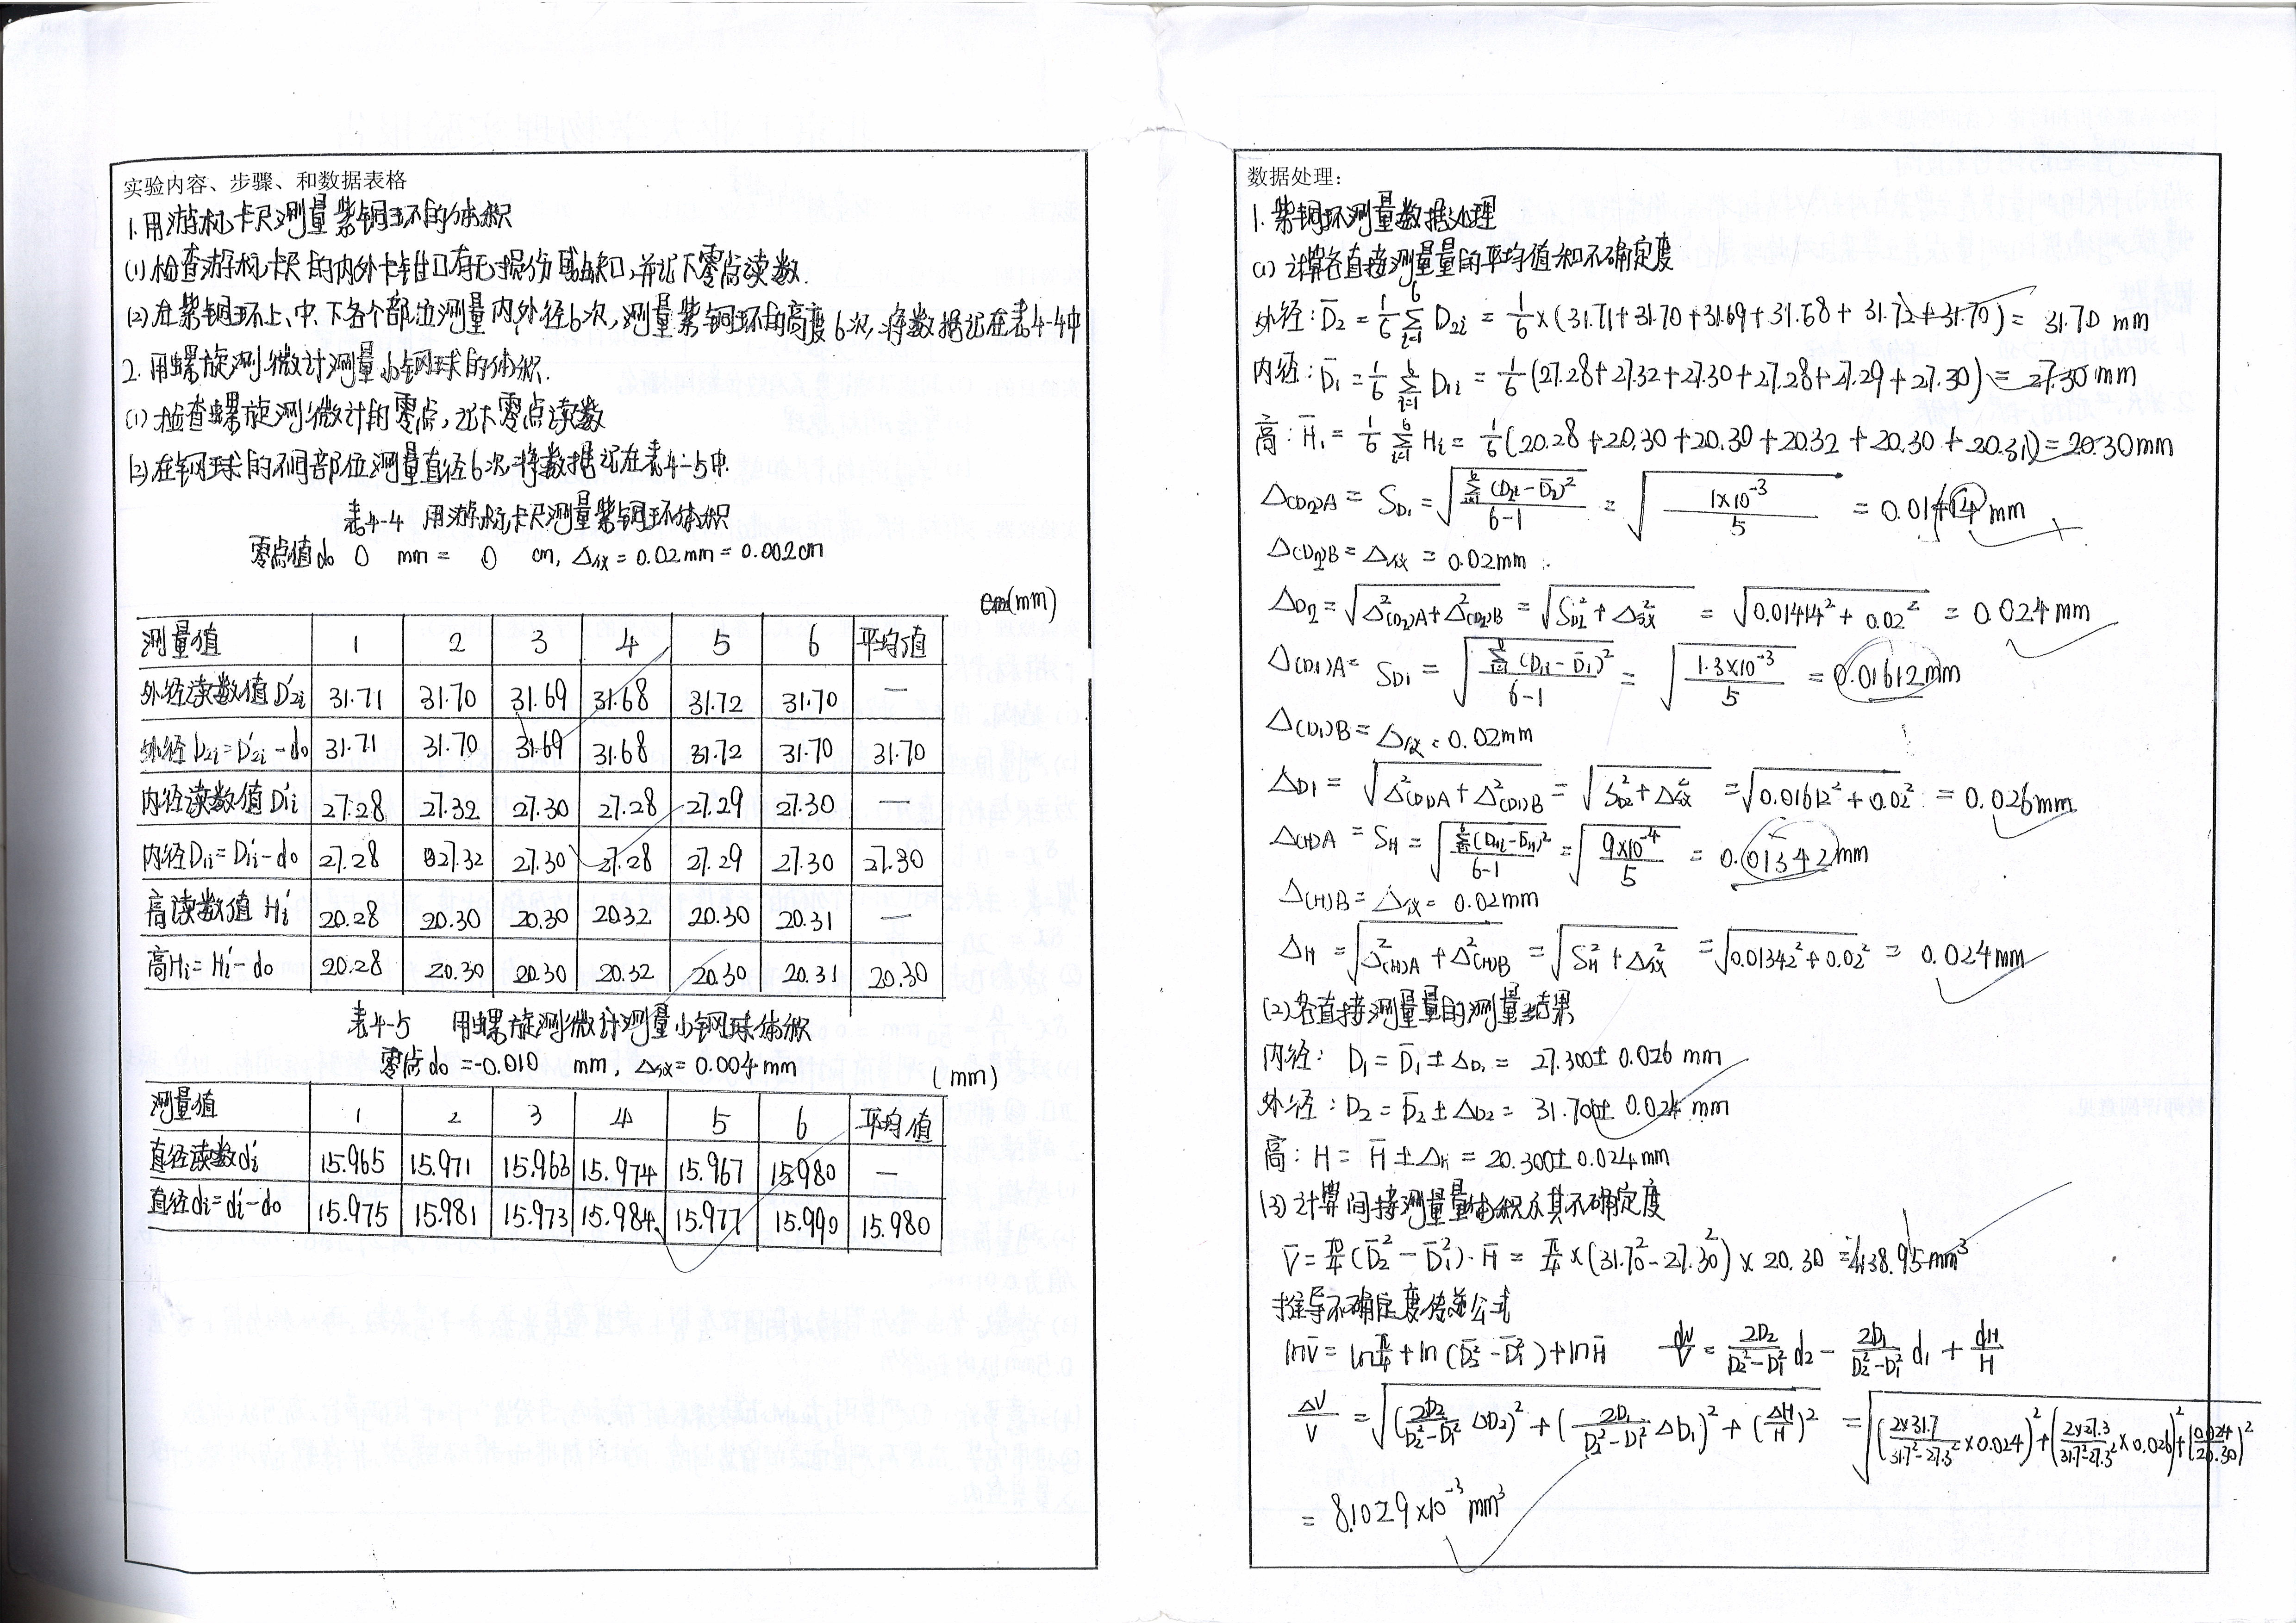 实验内容、步骤、和数据表格
1.用游标卡尺测量紫铜环的体积
(1)检查游标卡尺的内外卡钳口有无损伤或缺口,并记下零点读数.
(2)在紫铜环上、中、下各个部位测量内外径6次,测量紫铜环的高度6次,将数据记在表4-4中
2.用螺旋测微计测量小钢球的体积.
(1)检查螺旋测微计的零点,记下零点读数
(2)在钢球的不同部位测量直径6次,将数据记在表4-5中.
表4-4 用游标卡尺测量紫铜环体积
零点值d₀ 0 mm = 0 cm, Δ仪 = 0.02mm = 0.002cm
(mm)
测量值 1 2 3 4 5 6 平均值
外径读数值D'₂ᵢ 31.71 31.70 31.69 31.68 31.72 31.70 —
外径D₂ᵢ=D'₂ᵢ-d₀ 31.71 31.70 31.69 31.68 31.72 31.70 31.70
内径读数值D'₁ᵢ 27.28 27.32 27.30 27.28 27.29 27.30 —
内径D₁ᵢ=D'₁ᵢ-d₀ 27.28 27.32 27.30 27.28 27.29 27.30 27.30
高读数值Hᵢ' 20.28 20.30 20.30 20.32 20.30 20.31 —
高Hᵢ=Hᵢ'-d₀ 20.28 20.30 20.30 20.32 20.30 20.31 20.30
表4-5 用螺旋测微计测量小钢球体积
零点d₀=-0.010 mm, Δ仪=0.004mm (mm)
测量值 1 2 3 4 5 6 平均值
直径读数dᵢ' 15.965 15.971 15.963 15.974 15.967 15.980 —
直径dᵢ=dᵢ'-d₀ 15.975 15.981 15.973 15.984 15.977 15.990 15.980
数据处理:
1.紫铜环测量数据处理
(1)计算各直接测量量的平均值和不确定度
外径: D̄₂ = 1/6 Σ(i=1→6) D₂ᵢ = 1/6×(31.71+31.70+31.69+31.68+31.72+31.70) = 31.70 mm
内径: D̄₁ = 1/6 Σ(i=1→6) D₁ᵢ = 1/6(27.28+27.32+27.30+27.28+27.29+27.30) = 27.30 mm
高: H̄₁ = 1/6 Σ(i=1→6) Hᵢ = 1/6(20.28+20.30+20.30+20.32+20.30+20.31) = 20.30mm
Δ(D₂)A = S_D₁ = √(Σ(D₂ᵢ-D̄₂)²/(6-1)) = √(1×10⁻³/5) = 0.01414 mm
Δ(D₂)B = Δ仪 = 0.02mm
Δ_D₂ = √(Δ²(D₂)A+Δ²(D₂)B) = √(S²_D₂+Δ²仪) = √(0.01414²+0.02²) = 0.024 mm
Δ(D₁)A = S_D₁ = √(Σ(D₁ᵢ-D̄₁)²/(6-1)) = √(1.3×10⁻³/5) = 0.01612mm
Δ(D₁)B = Δ仪 = 0.02mm
Δ_D₁ = √(Δ²(D₁)A+Δ²(D₁)B) = √(S²_D₂+Δ²仪) = √(0.01612²+0.02²) = 0.026mm
Δ(H)A = S_H = √(Σ(D_Hᵢ-D̄_H)²/(6-1)) = √(9×10⁻⁴/5) = 0.01342mm
Δ(H)B = Δ仪 = 0.02mm
Δ_H = √(Δ²(H)A+Δ²(H)B) = √(S²_H+Δ²仪) = √(0.01342²+0.02²) = 0.024mm
(2)各直接测量量的测量结果
内径: D₁ = D̄₁ ± Δ_D₁ = 27.300±0.026 mm
外径: D₂ = D̄₂ ± Δ_D₂ = 31.700± 0.024 mm
高: H = H̄ ± Δ_h = 20.300±0.024mm
(3)计算间接测量量体积及其不确定度
V̄ = π/4(D̄₂²-D̄₁²)·H̄ = π/4×(31.70²-27.30²)×20.30 = 4138.95mm³
推导不确定度传递公式
lnV̄ = lnπ/4+ln(D̄₂²-D̄₁²)+lnH̄ dV/V = 2D₂/(D₂²-D₁²) d₂ - 2D₁/(D₂²-D₁²) d₁ + dH/H
ΔV/V = √((2D₂/(D₂²-D₁²) ΔD₂)²+(2D₁/(D₂²-D₁²) ΔD₁)²+(ΔH/H)²) = √((2×31.7/(31.7²-27.3²)×0.024)²+(2×27.3/(31.7²-27.3²)×0.026)²+(0.024/20.30)²)
= 8.1029×10⁻³ mm³